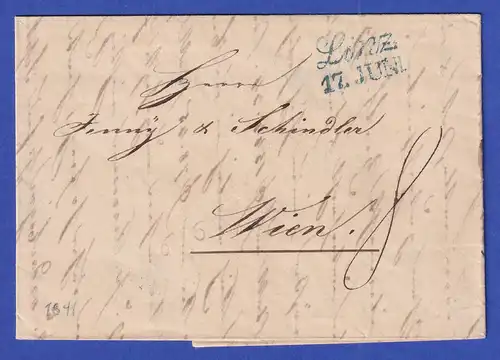 Linz
17. JUNI.
Herrn
Jenny & Schindler
Wien.
8
1841